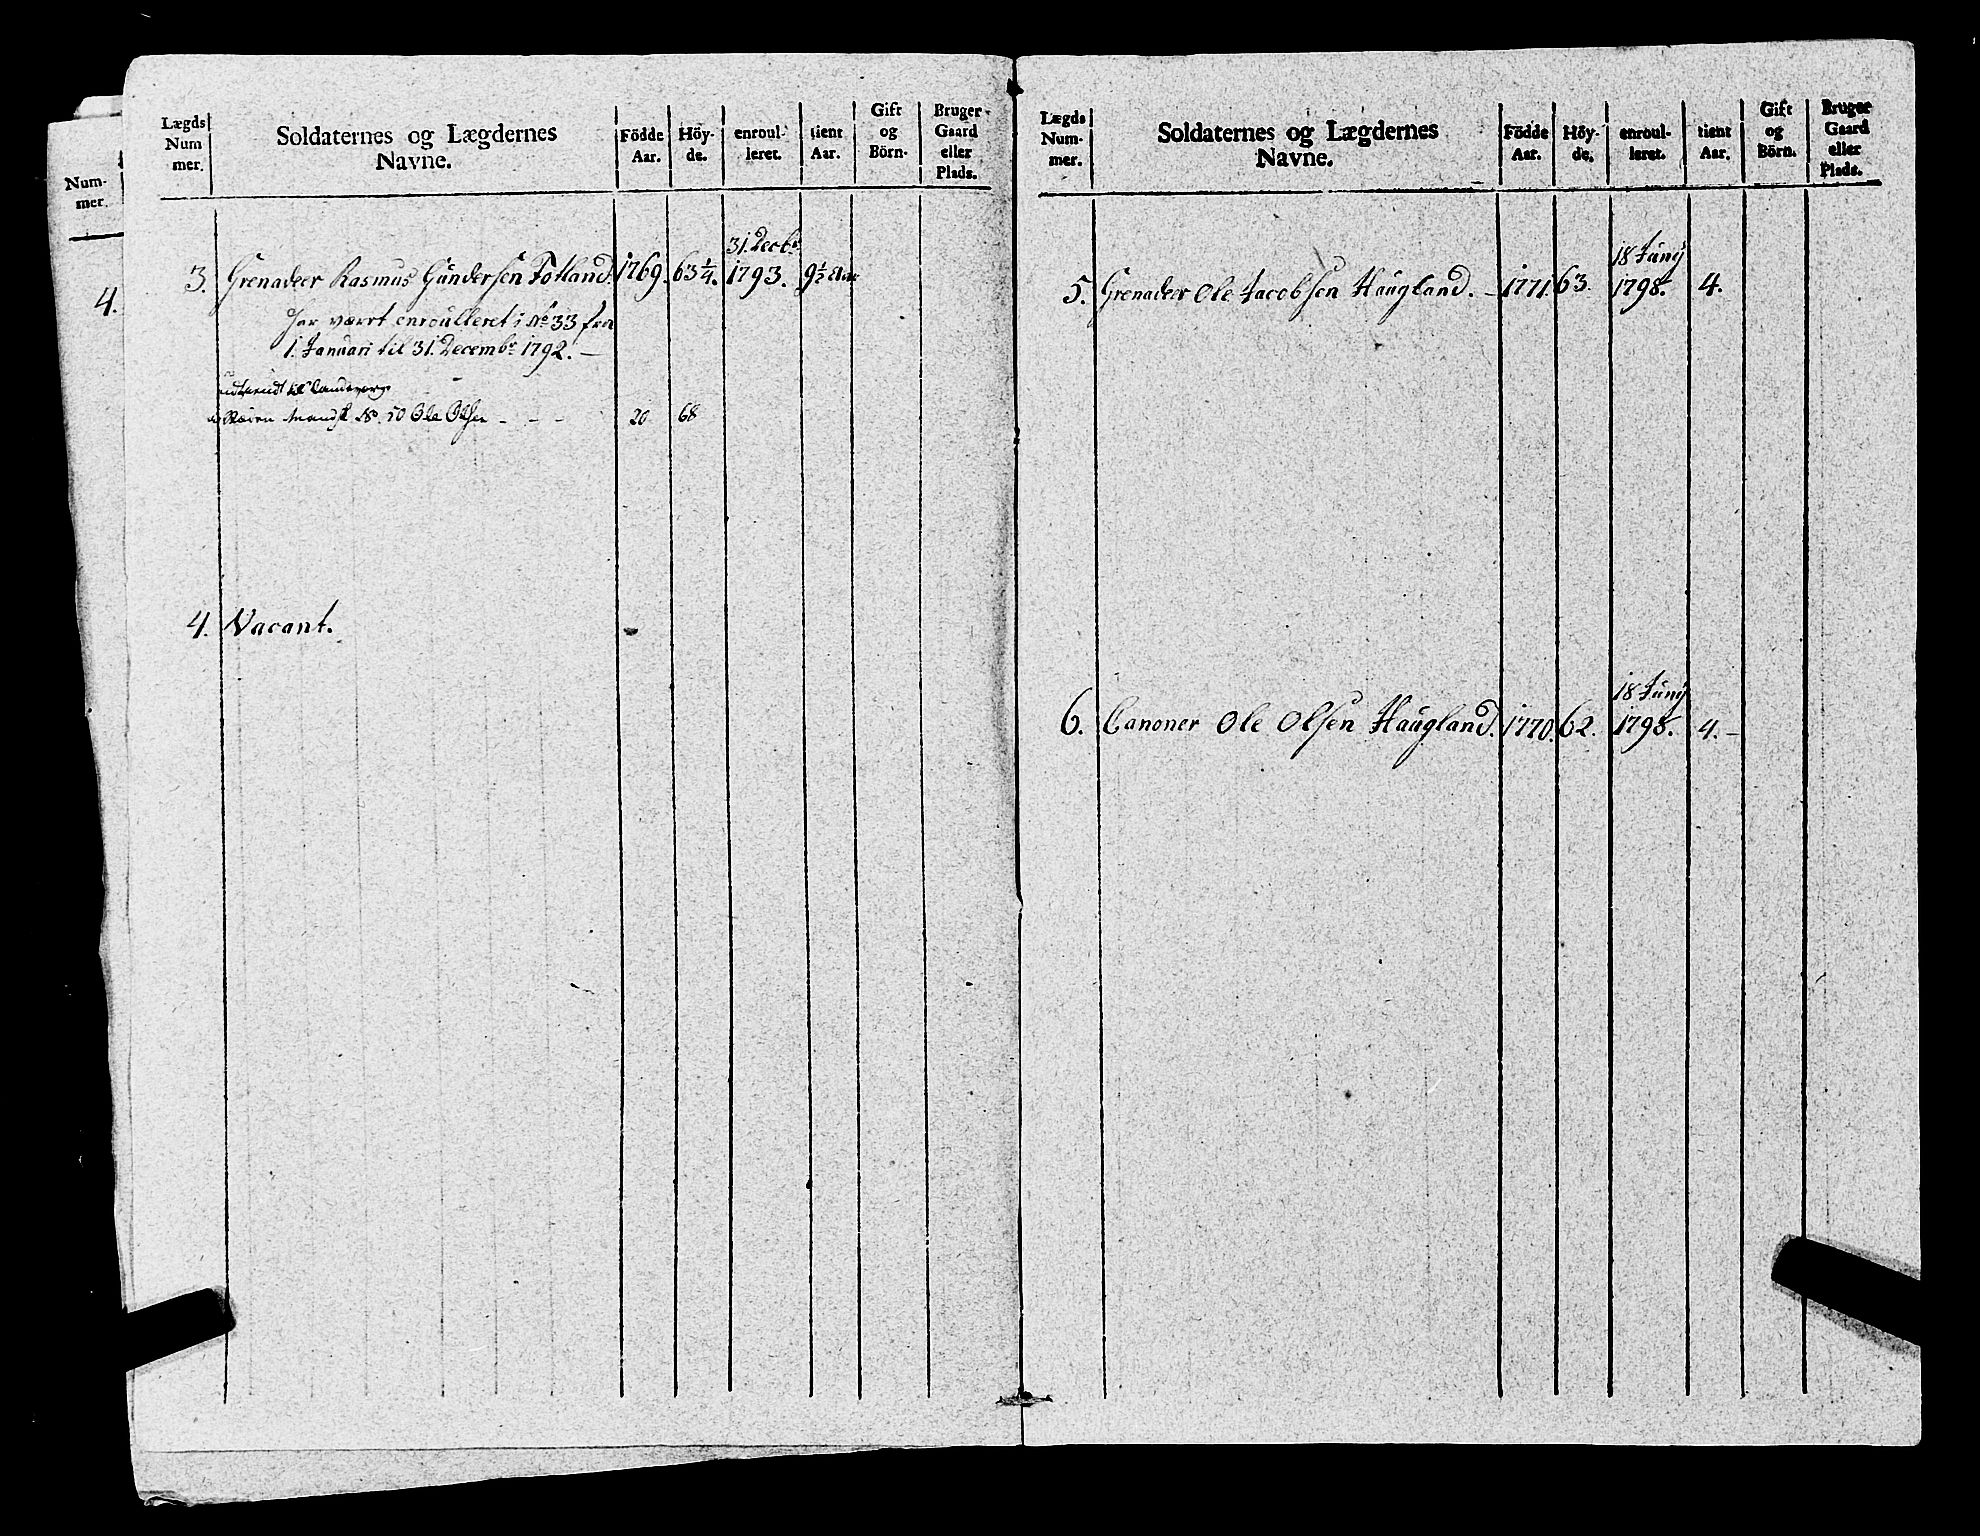 Num-
mer.
4.
Lægds Num mer.
Soldaternes og Lægdernes Navne.
Födde Aar.
Höy- de.
enroul- leret.
tient Aar.
Gift og Börn.
Bruger- Gaard eller Plads.
31. Decbr
3. Grenadeer Rasmus Gundersen Fotland. 1769. 63 1/4. 1793. 9 1/2 Aar
har værrt enroulleret i No 33 fra
1. Januari til 31. Decembr 1792. —
til
No. 50 Ole Olsen - - - 20 68
4. Vacant.
Lægds Num- mer.
Soldaternes og Lægdernes Navne.
Födde Aar.
Höy- de.
enroul- leret.
tient Aar.
Gift og Börn.
Bruger Gaard eller Plads.
18 Juny
5. Grenadeer Ole Jacobsen Haugland. - 1771. 63. 1798. 4.
18 Juny
6. Canoner Ole Olsen Haugland. 1770. 62. 1798. 4. -